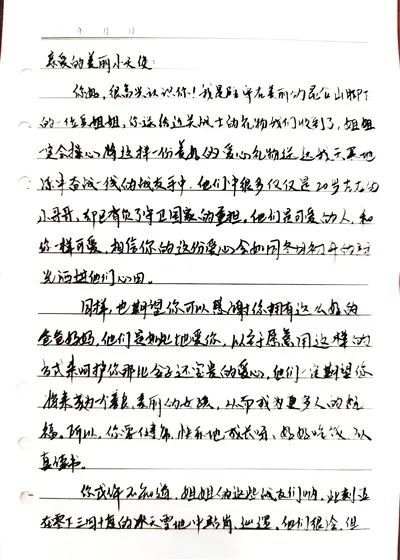 年 月 日
亲爱的美丽小天使：
你好，很高兴认识你！我是驻守在美丽的昆仑山脚下
的一位兵姐姐，你送给边关战士的礼物我们收到了，姐姐
一定会将这样一份善良的爱心礼物送达我
奋战一线的战友手中，他们中很多仅仅是20岁左右的
小哥哥，却已肩负了守卫国家的重担。他们是可爱的人，和
你一样可爱，相信你的这份爱心会如同冬日初升的阳
光洒进他们心田。
同样，也期望你可以感谢你拥有这么好的
爸爸妈妈，他们是如此地爱你，以至于愿意用这样的
方式来呵护你那比金子还宝贵的爱心，他们一定期望你
将来成为一个善良、美丽的女孩，从而成为更多人的祝
福。所以，你要健康、快乐地成长呀，好好吃饭、认
真读书。
你或许不知道，姐姐的这些战友们呐，此刻正
在零下三四十度的冰天雪地中站岗、巡逻，他们很冷，但